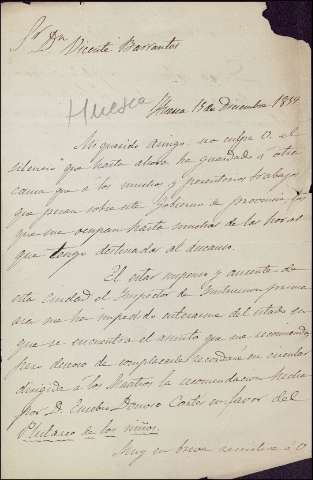 Sr. Dn
Vicente Barrantes
Huesca
Huesca 15 de Diciembre 1854
Mi querido amigo: no culpe V. el
silencio que hasta ahora he guardado a otra
causa que a los muchos y perentorios trabajos
que pesan sobre este Gobierno de provincia
que me ocupan hasta muchas de las horas
que tengo destinadas al descanso.
El estar enfermo y ausente de
esta ciudad el Inspector de Instruccion prima
ria me ha impedido enterarme del estado en
que se encuentra el asunto que me recomienda
pero deseoso de complacerle recordaré en circular
dirigida a los Maestros la recomendacion hecha
por D. Eusebio Donoso Cortés en favor del
Plutarco de los niños.
Muy en breve remitiré a V